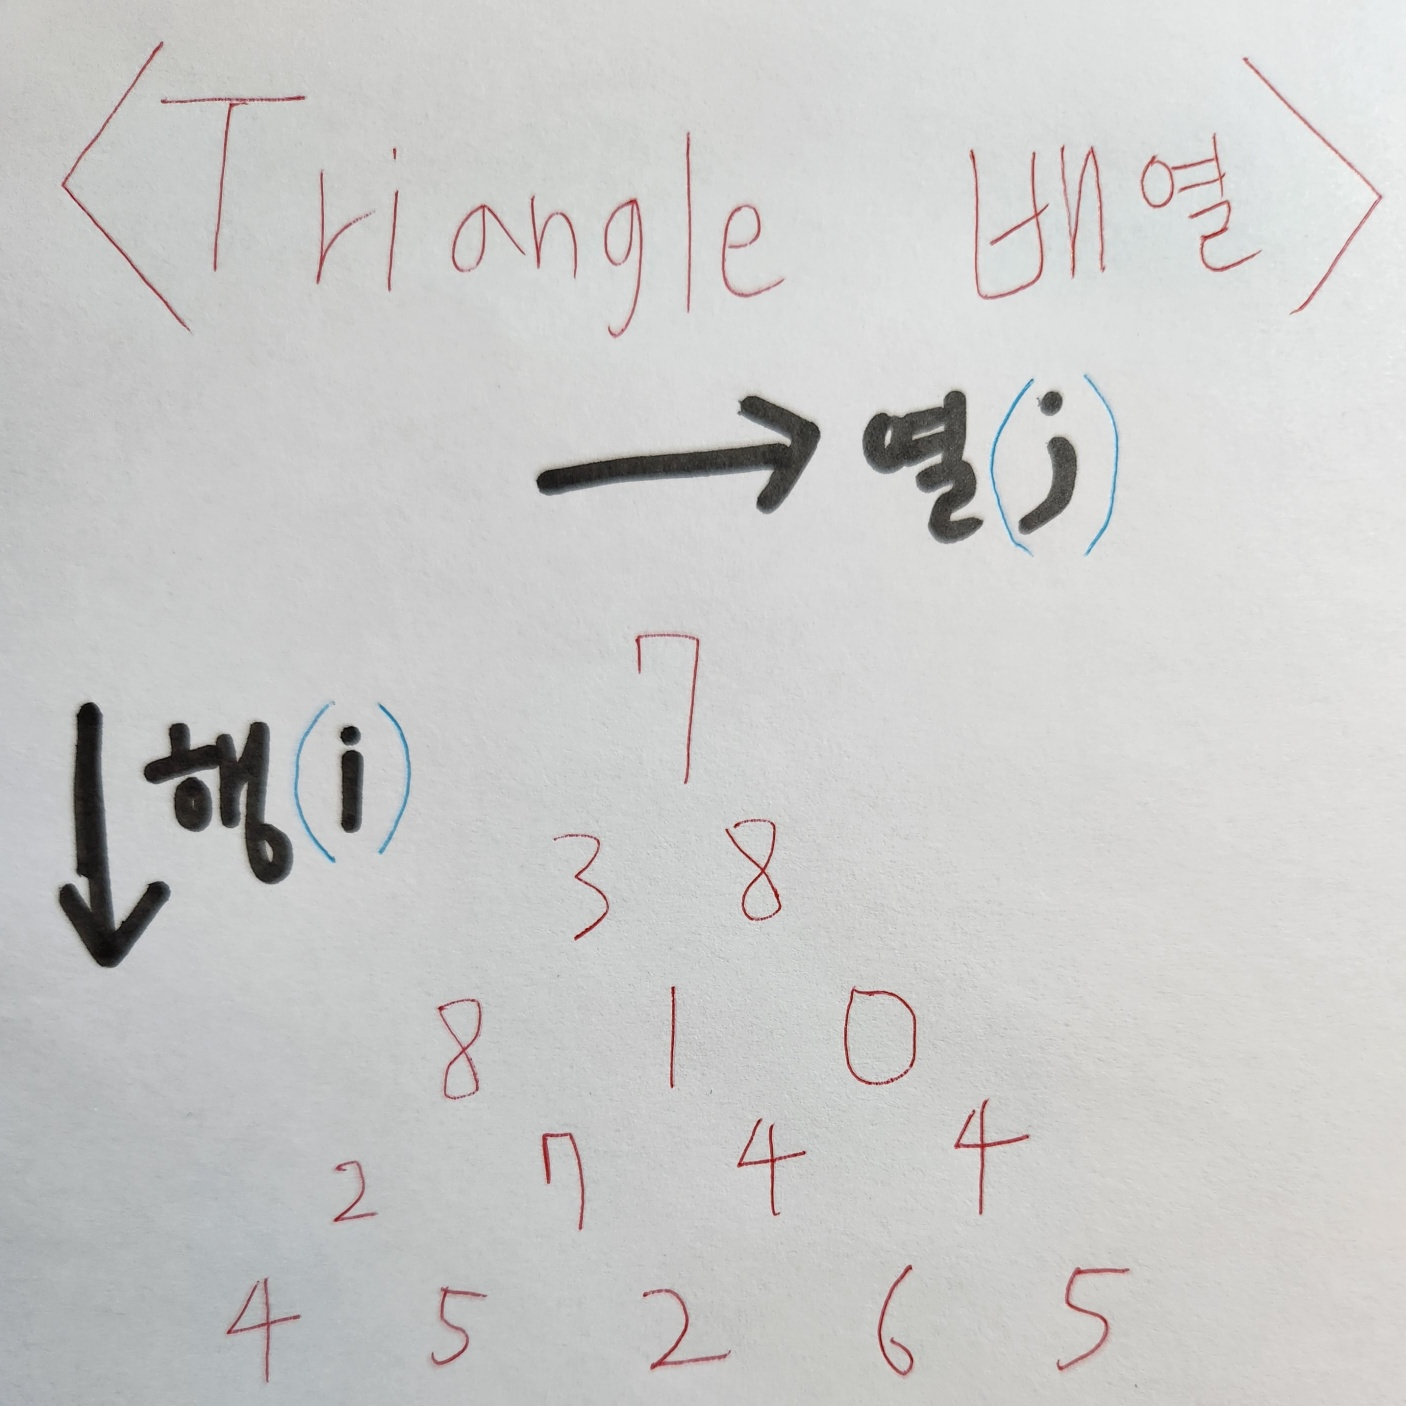 <Triangle 배열>
→ 열(j)
7
↓ 행(i)
3 8
8 1 0
2 7 4 4
4 5 2 6 5